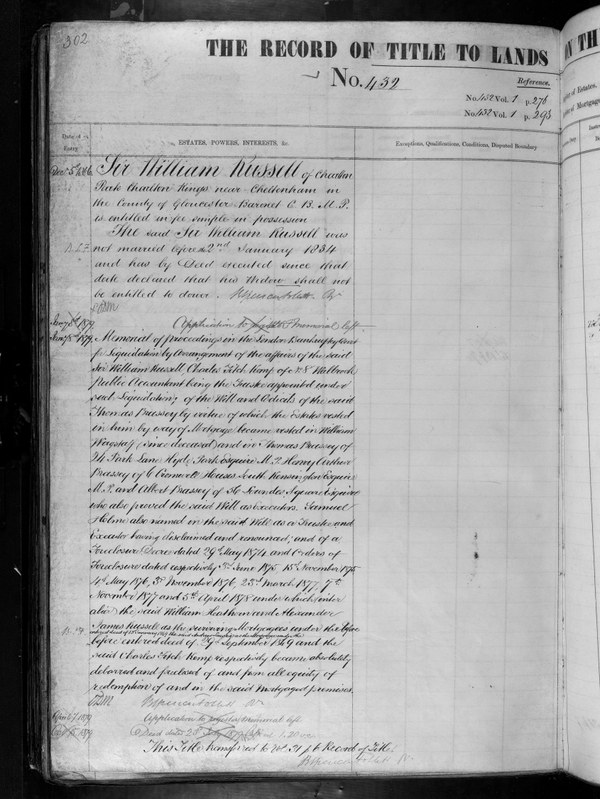 302
THE RECORD OF TITLE TO LANDS
No. 432
Reference.
No. 432 Vol. 1 p. 276
No. 432 Vol. 1 p. 293
Date of Entry
ESTATES, POWERS, INTERESTS, &c.
Exceptions, Qualifications, Conditions, Disputed Boundary
Sir William Russell of Charlton
Park Charlton Kings near Cheltenham in
the County of Gloucester Baronet C. B. M. P.
is entitled in fee simple in possession
The said Sir William Russell was
not married before 2nd January 1834
and has by Deed executed since that
date declared that his Widow shall not
be entitled to dower.
Application to register memorial left
Memorial of proceedings in the London Bankruptcy Court
for Liquidation by Arrangement of the affairs of the said
Sir William Russell Charles Fitch Kemp of No 8 Walbrook
Public Accountant being the Trustee appointed under
such Liquidation; of the Will and Codicils of the said
Thomas Brassey by virtue of which the Estates vested
in him by way of Mortgage became vested in William
Wagstaff (since deceased) and in Thomas Brassey of
24 Park Lane Hyde Park Esquire M.P. Henry Arthur
Brassey of 6 Cromwell Houses South Kensington Esquire
M.P. and Albert Brassey of 36 Lowndes Square Esquire
who also proved the said Will as executors. Samuel
Holme also named in the said Will as a Trustee and
Executor having disclaimed and renounced; and of a
Foreclosure Decree dated 29th May 1874 and Orders of
Foreclosure dated respectively June 1875 15th November 1875
4th May 1876, 3rd November 1876, 23rd March 1877, 7th
November 1877 and 5th April 1878 under which inter
alia the said William Heathorn and Alexander
James Russell as the surviving Mortgagees under the before
before entered deed of 29th September 1869 and the
said Charles Fitch Kemp respectively became absolutely
debarred and foreclosed of and from all equity of
redemption of and in the said Mortgaged premises.
April 7 1879
Application to register memorial left.
This Title transferred to Vol. of the Record of Title.